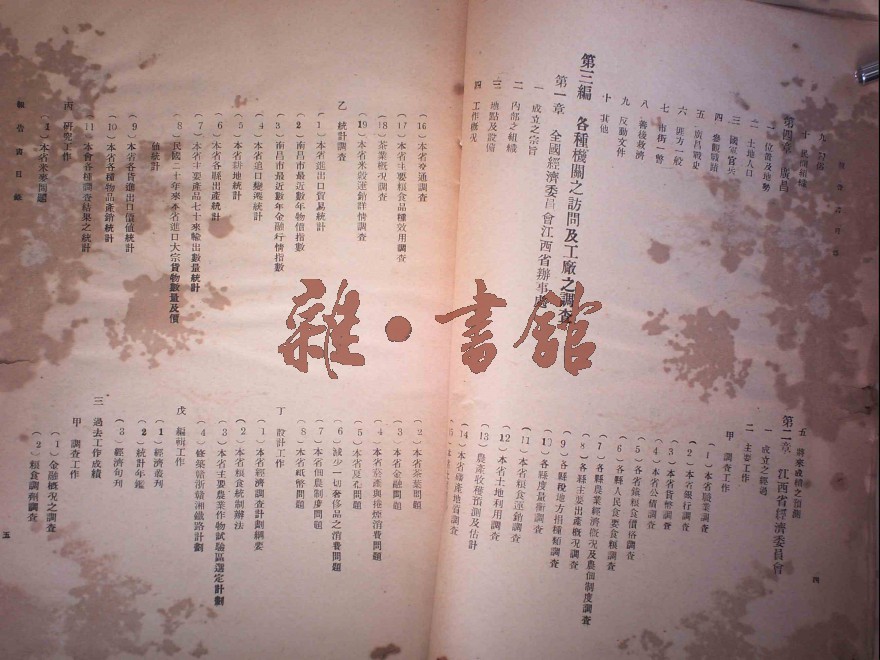 報告書目錄
九 匀源
第四章 廣昌
一 位置及地勢
二 土地人口
三 國軍官兵
四 參觀戰蹟
五 廣昌戰史
六 匪方一般
七 市街一瞥
八 善後救濟
九 反動文件
十 其他
第三編 各種機關之訪問及工廠之調查
第一章 全國經濟委員會江西省辦事處
一 成立之宗旨
二 內部之組織
三 地點及設備
四 工作概況
五 將來成績之預測
第二章 江西省經濟委員會
一 成立之經過
二 主要工作
甲 調查工作
(1)本省職業調查
(2)本省銀行調查
(3)本省貨幣調查
(4)本省公債調查
(5)各省米糧食價格調查
(6)各縣人民食要食糧調查
(7)各縣農業經濟概況及農佃制度調查
(8)各縣主要出產概況調查
(9)各縣稅地方捐種類調查
(10)各縣度量衡調查
(11)本省糧食運銷調查
(12)本省土地利用調查
(13)農產收穫預測及估計
(14)本省礦產地質調查
四
(16)本省交通調查
(17)本省主要糧食品種效用調查
(18)茶業概況調查
(19)本省米穀運銷詳情調查
乙 統計調查
(1)本省進出口貿易統計
(2)南昌市最近數年物價指數
(3)南昌市最近數年金融行情指數
(4)本省進口變遷統計
(5)本省耕地統計
(6)本省各縣出產統計
(7)本省主要產品七十來輸出數量統計
(8)民國二十年來本省進口大宗貨物數量及價
值統計
(9)本省各貨進出口價值統計
(10)本省各種物品產銷統計
(11)本會各種調查結果之統計
丙 研究工作
(1)本省米業問題
(2)本省茶葉問題
(3)本省金融問題
(4)本省菸產與捲煙消費問題
(5)本省夏布問題
(6)減少一切奢侈品之消費問題
(7)本省佃農制度問題
(8)本省紙幣問題
丁 設計工作
(1)本省經濟調查計劃綱要
(2)本省糧食統制辦法
(3)本省主要農業作物試驗區選定計劃
(4)修築贛浙贛湘鐵路計劃
戊 編輯工作
(1)經濟叢刊
(2)統計年鑑
(3)經濟旬刊
三 過去工作成績
甲 調查工作
(1)金融概況之調查
(2)糧食調劑調查
報告書目錄
五
雜·書館